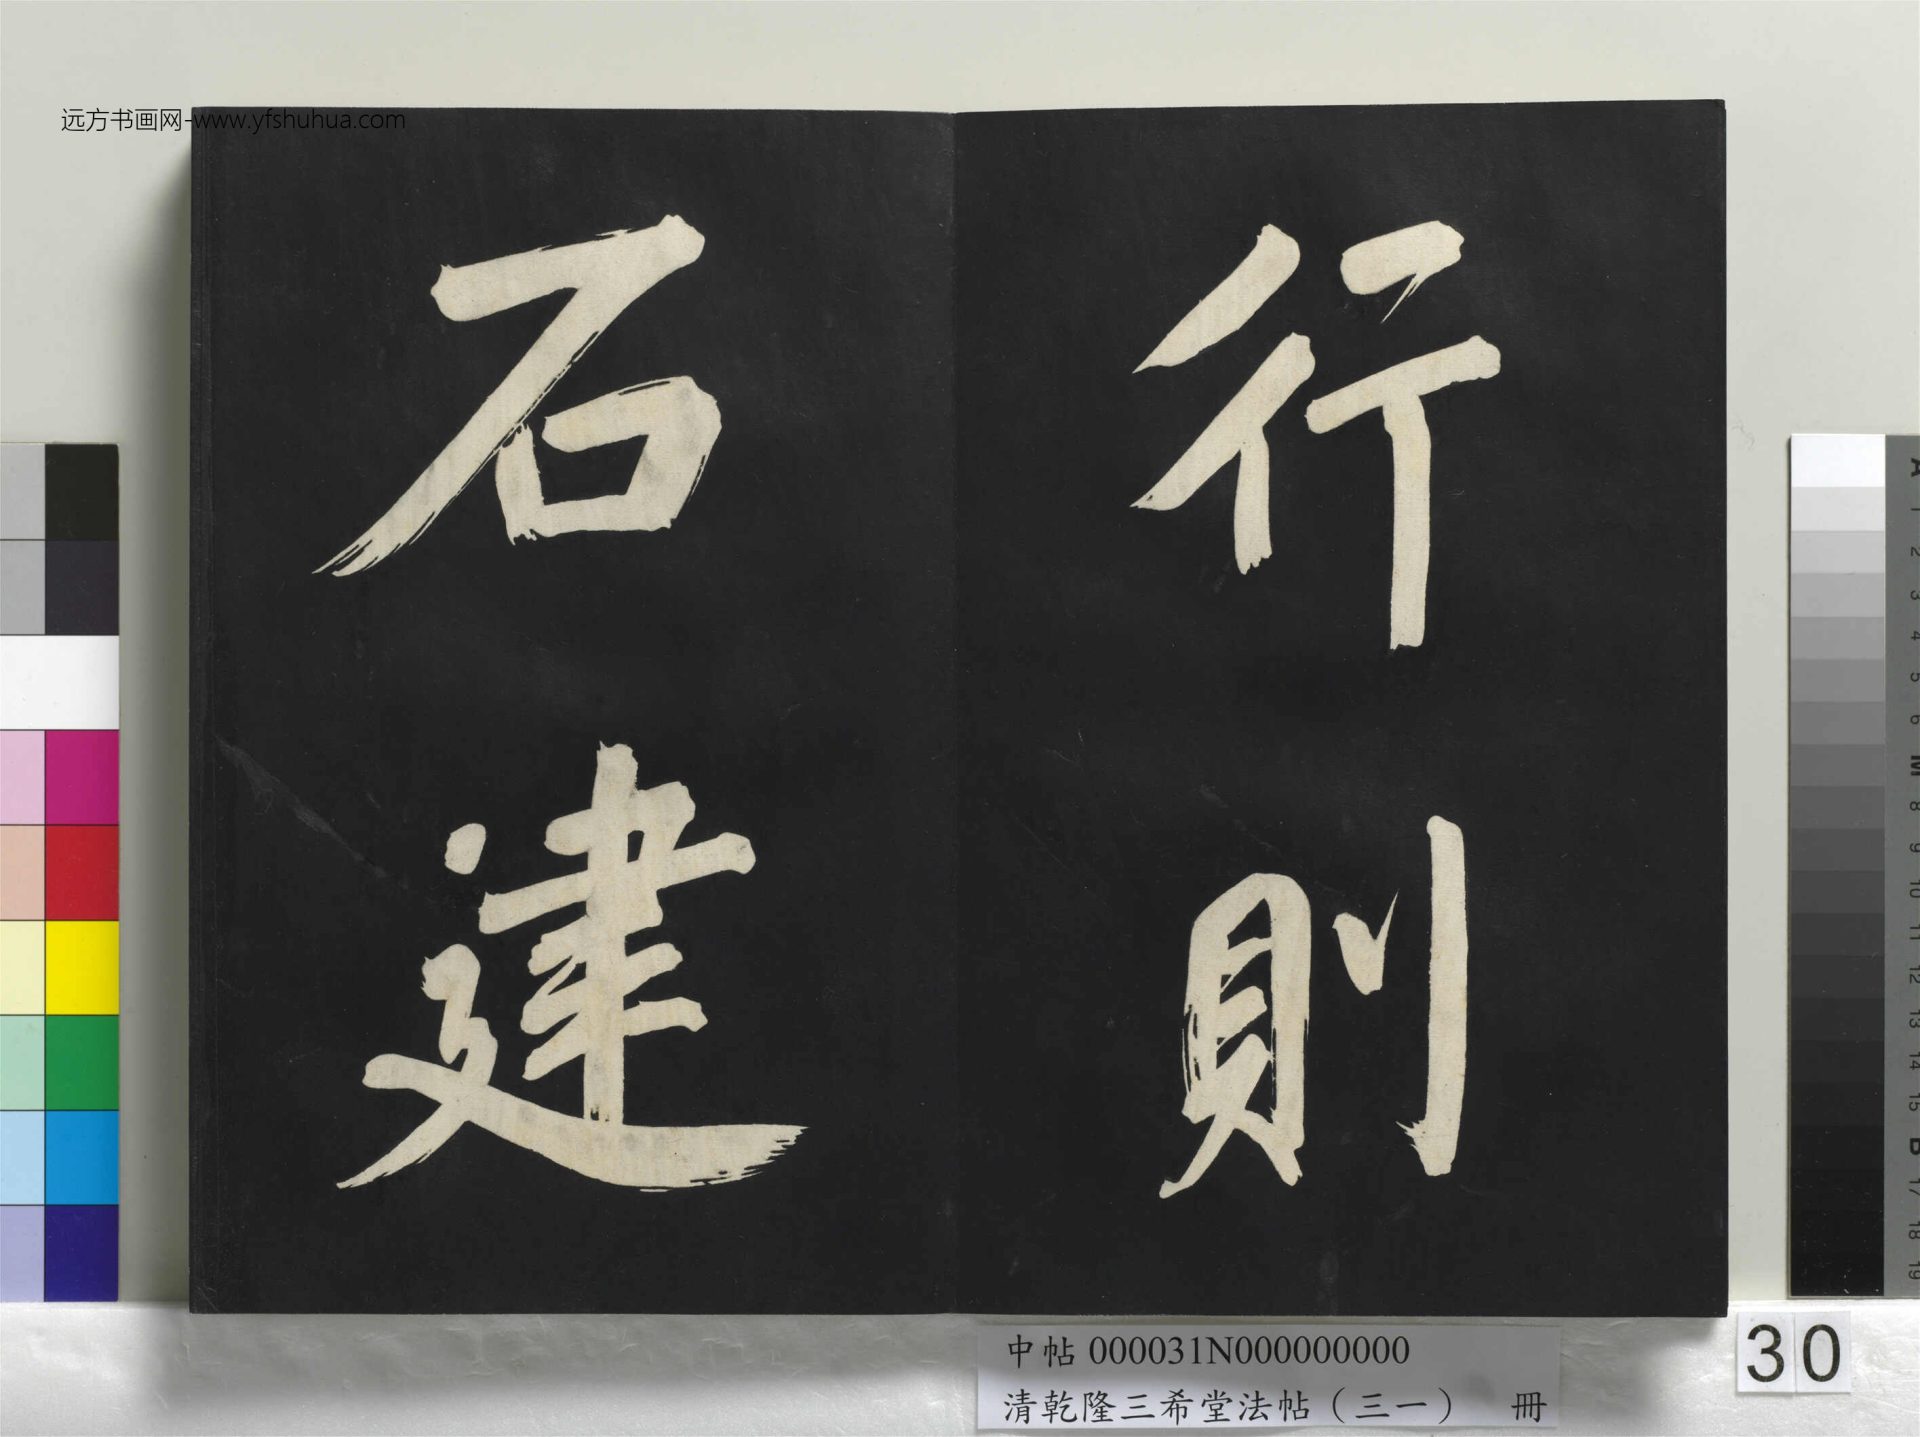 远方书画网-www.yfshuhua.com
行則
石建
中帖 000031N000000000
清乾隆三希堂法帖（三一） 冊
30
A
1
2
3
4
5
6
M
8
9
10
11
12
13
14
15
B
17
18
19